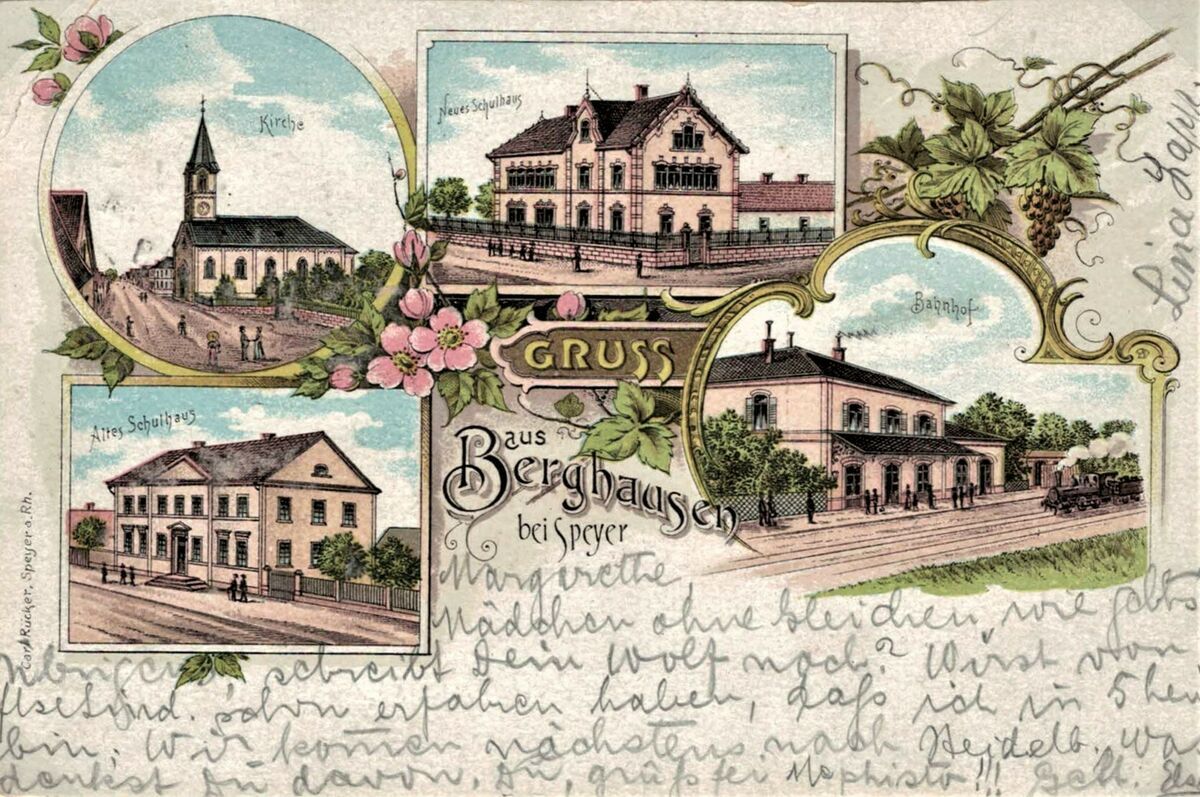 Kirche
Neues Schulhaus
Bahnhof
Altes Schulhaus
GRUSS
aus
Berghausen
bei Speyer
Carl Rücker, Speyer a. Rh.
Lina
Margarethe,
Mädchen ohne Gleichen, wie gehts
schreibt Dein Wolf noch? Wirst von
schon erfahren haben, daß ich in 5
bin. Wir kommen nächstens nach Heidelb. Was
denkst Du davon. Du, grüß Mephisto!!! Gelt.